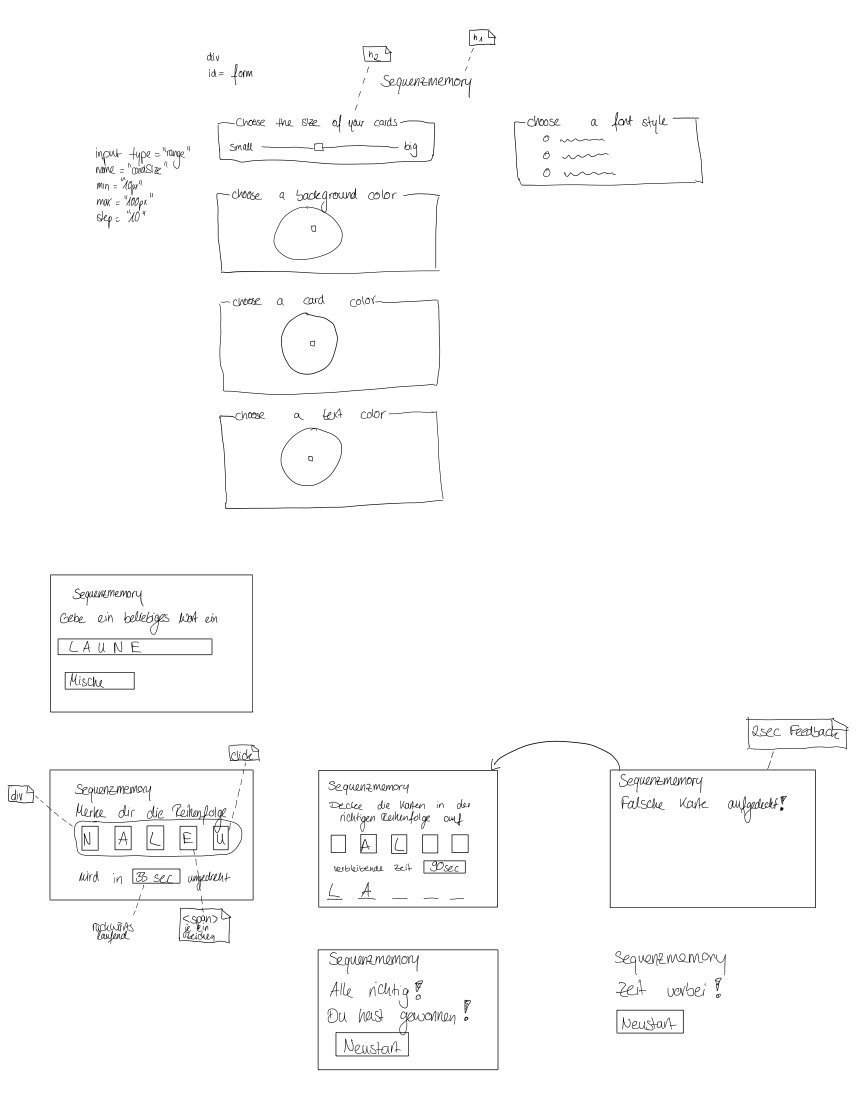 h1
h2
div
id = form
Sequenzmemory
Choose the size of your cards
small big
choose a font style
input type = "range"
name = "cardSize"
min = "10px"
max = "100px"
step = "10"
choose a background color
choose a card color
choose a text color
Sequenzmemory
Gebe ein beliebiges Wort ein
LAUNE
Mische
2sec Feedback
click
div
Sequenzmemory
Merke dir die Reihenfolge
N A L E U
wird in 33 sec umgedreht
rückwärts
laufend
<span>
je ein
Zeichen
Sequenzmemory
Decke die Karten in der
richtigen Reihenfolge auf
A L
verbleibende Zeit 90sec
L A _ _ _
Sequenzmemory
Falsche Karte aufgedeckt!
Sequenzmemory
Alle richtig!
Du hast gewonnen!
Neustart
Sequenzmemory
Zeit vorbei!
Neustart